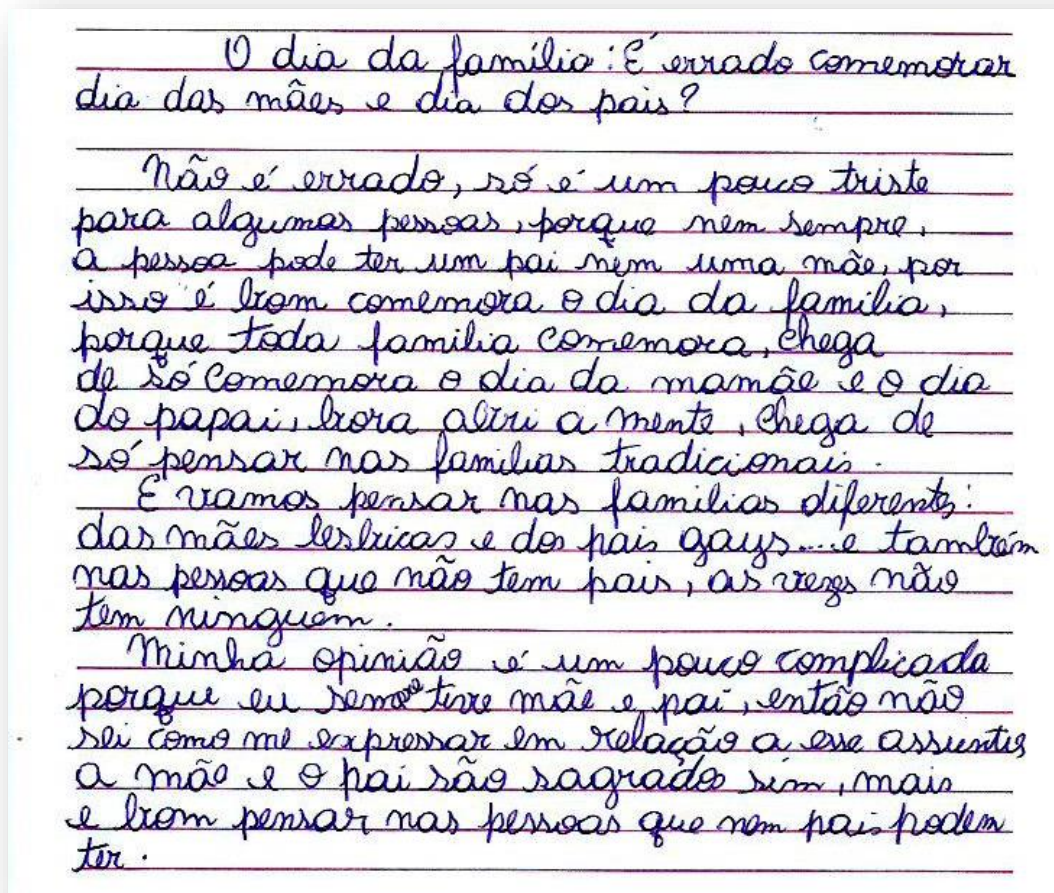 O dia da família: É errado comemorar
dia das mães e dia dos pais?
Não é errado, só é um pouco triste
para algumas pessoas, porque nem sempre,
a pessoa pode ter um pai nem uma mãe, por
isso é bom comemora o dia da família,
porque toda família comemora, chega
de só comemora o dia da mamãe e o dia
do papai, bora abri a mente, chega de
só pensar nas famílias tradicionais.
E vamos pensar nas famílias diferentes:
das mães lesbicas e dos pais gays... e também
nas pessoas que não tem pais, as vezes não
tem ninguém.
Minha opinião é um pouco complicada
porque eu sempre tive mãe e pai, então não
sei como me expressar em relação a esse assunto,
a mãe e o pai são sagrados sim, mais
e bom pensar nas pessoas que nem pais podem
ter.